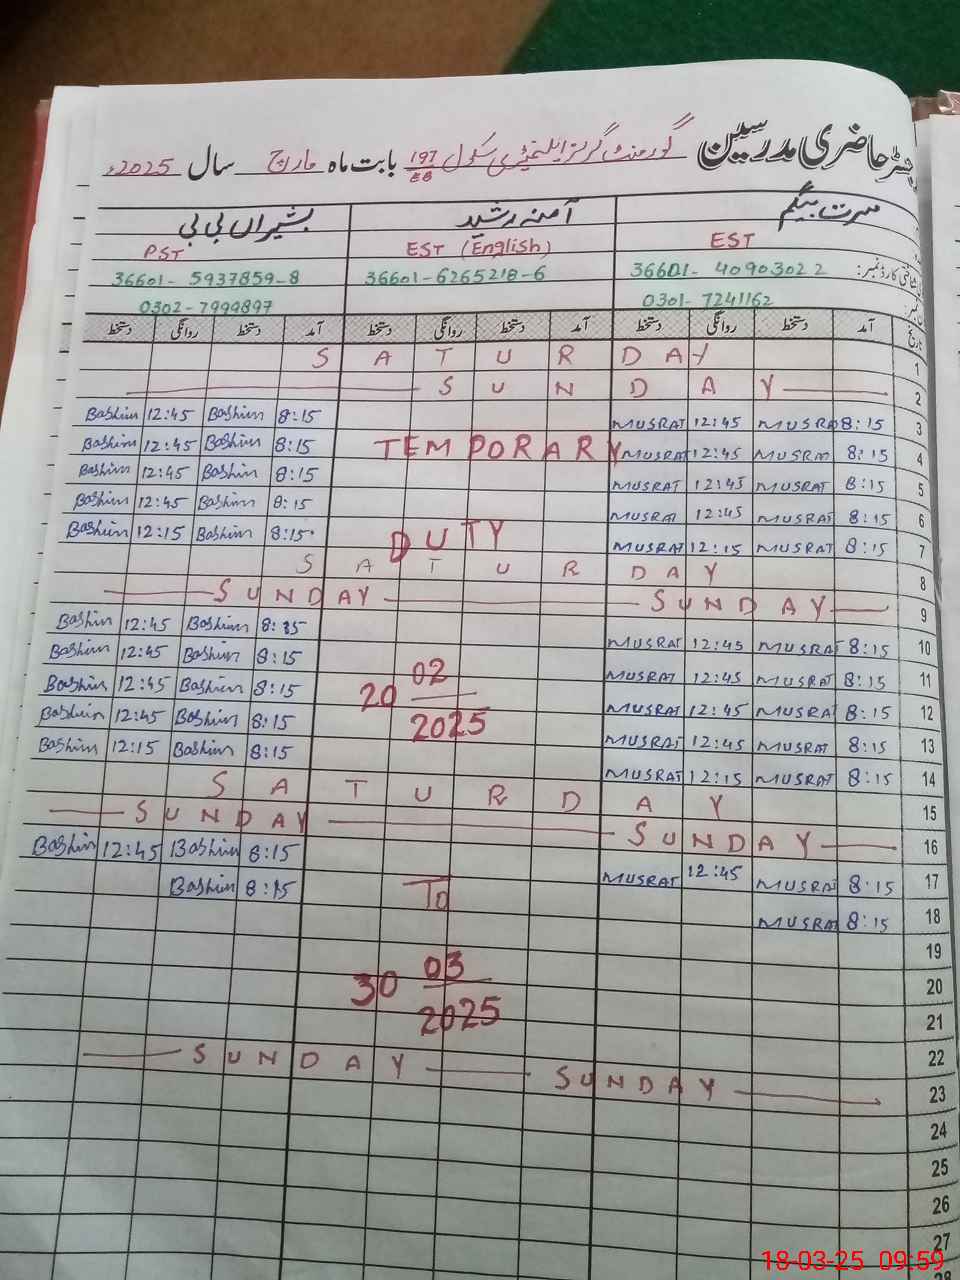 رجسٹر حاضری مدرسین گورنمنٹ گرلز ایلیمنٹری سکول 197/EB بابت ماہ مارچ سال 2025ء
مسرت بیگم آمنہ رشید بشیراں بی بی
EST EST (English) PST
شناختی کارڈ نمبر: 36601-40903022 36601-6265218-6 36601-5937859-8
0301-7241162 0302-7999897
تاریخ آمد دستخط روانگی دستخط آمد دستخط روانگی دستخط آمد دستخط روانگی دستخط
SATURDAY 1
SUNDAY 2
Bashiran 12:45 Bashiran 8:15 MUSRAT 12:45 MUSRAT 8:15 3
Bashiran 12:45 Bashiran 8:15 TEMPORARY MUSRAT 12:45 MUSRAT 8:15 4
Bashiran 12:45 Bashiran 8:15 MUSRAT 12:45 MUSRAT 8:15 5
Bashiran 12:45 Bashiran 8:15 MUSRAT 12:45 MUSRAT 8:15 6
Bashiran 12:15 Bashiran 8:15 DUTY MUSRAT 12:15 MUSRAT 8:15 7
SATURDAY 8
SUNDAY SUNDAY 9
Bashiran 12:45 Bashiran 8:15 MUSRAT 12:45 MUSRAT 8:15 10
Bashiran 12:45 Bashiran 8:15 02 MUSRAT 12:45 MUSRAT 8:15 11
Bashiran 12:45 Bashiran 8:15 20 MUSRAT 12:45 MUSRAT 8:15 12
Bashiran 12:45 Bashiran 8:15 2025 MUSRAT 12:45 MUSRAT 8:15 13
Bashiran 12:15 Bashiran 8:15 MUSRAT 12:15 MUSRAT 8:15 14
SATURDAY 15
SUNDAY SUNDAY 16
Bashiran 12:45 Bashiran 8:15 MUSRAT 12:45 MUSRAT 8:15 17
Bashiran 8:15 To MUSRAT 8:15 18
19
03 20
30 2025 21
22
SUNDAY SUNDAY 23
24
25
26
27
28
18-03-25 09:59